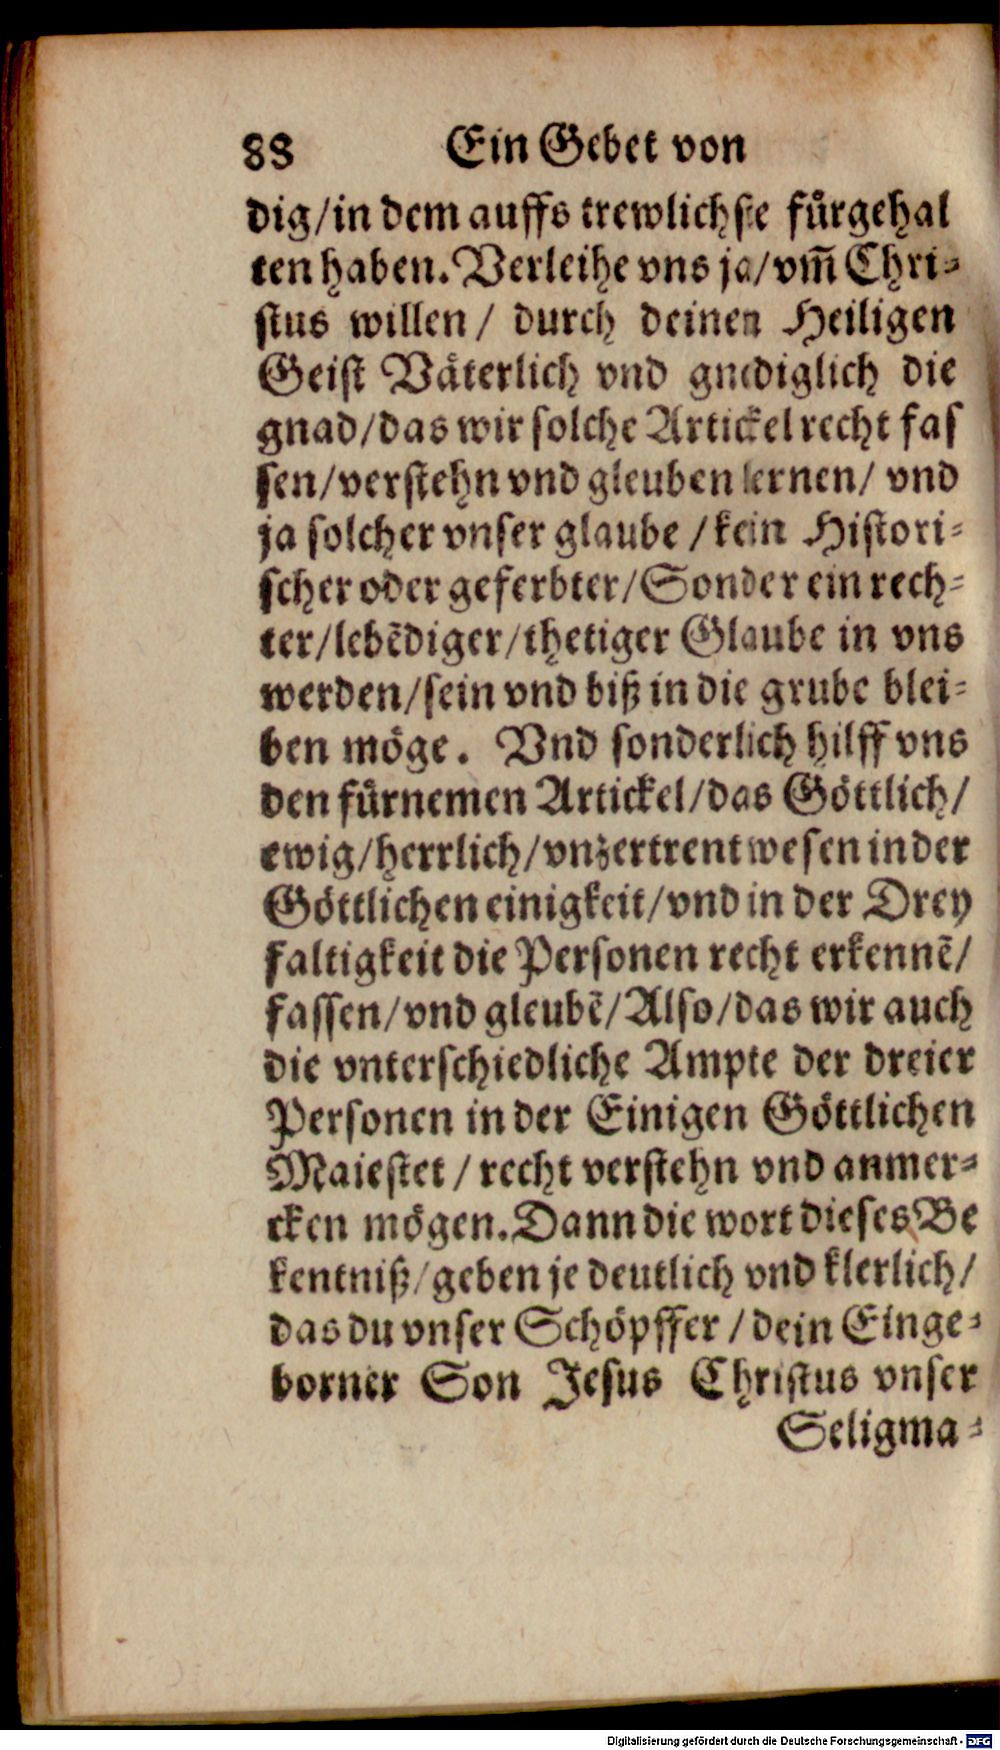 88 Ein Gebet von
dig/in dem auffs trewlichste fuͤrgehal
ten haben. Verleihe vns ja/vm̃ Chri-
stus willen/ durch deinen Heiligen
Geist Vaͤterlich vnd gnediglich die
gnad/das wir solche Artickel recht fas
sen/verstehn vnd gleuben lernen/ vnd
ja solcher vnser glaube /kein Histori-
scher oder geferbter/Sonder ein rech-
ter/lebẽdiger/thetiger Glaube in vns
werden/sein vnd biß in die grube blei-
ben moͤge. Vnd sonderlich hilff vns
den fuͤrnemen Artickel/das Goͤttlich/
ewig/herrlich/vnzertrent wesen in der
Goͤttlichen einigkeit/vnd in der Drey
faltigkeit die Personen recht erkennẽ/
fassen/vnd gleubẽ/Also/das wir auch
die vnterschiedliche Ampte der dreier
Personen in der Einigen Goͤttlichen
Maiestet / recht verstehn vnd anmer-
cken moͤgen. Dann die wort dieses Be
kentniß/geben je deutlich vnd klerlich/
das du vnser Schoͤpffer / dein Einge-
borner Son Jesus Christus vnser
Seligma-
Digitalisierung gefördert durch die Deutsche Forschungsgemeinschaft - DFG